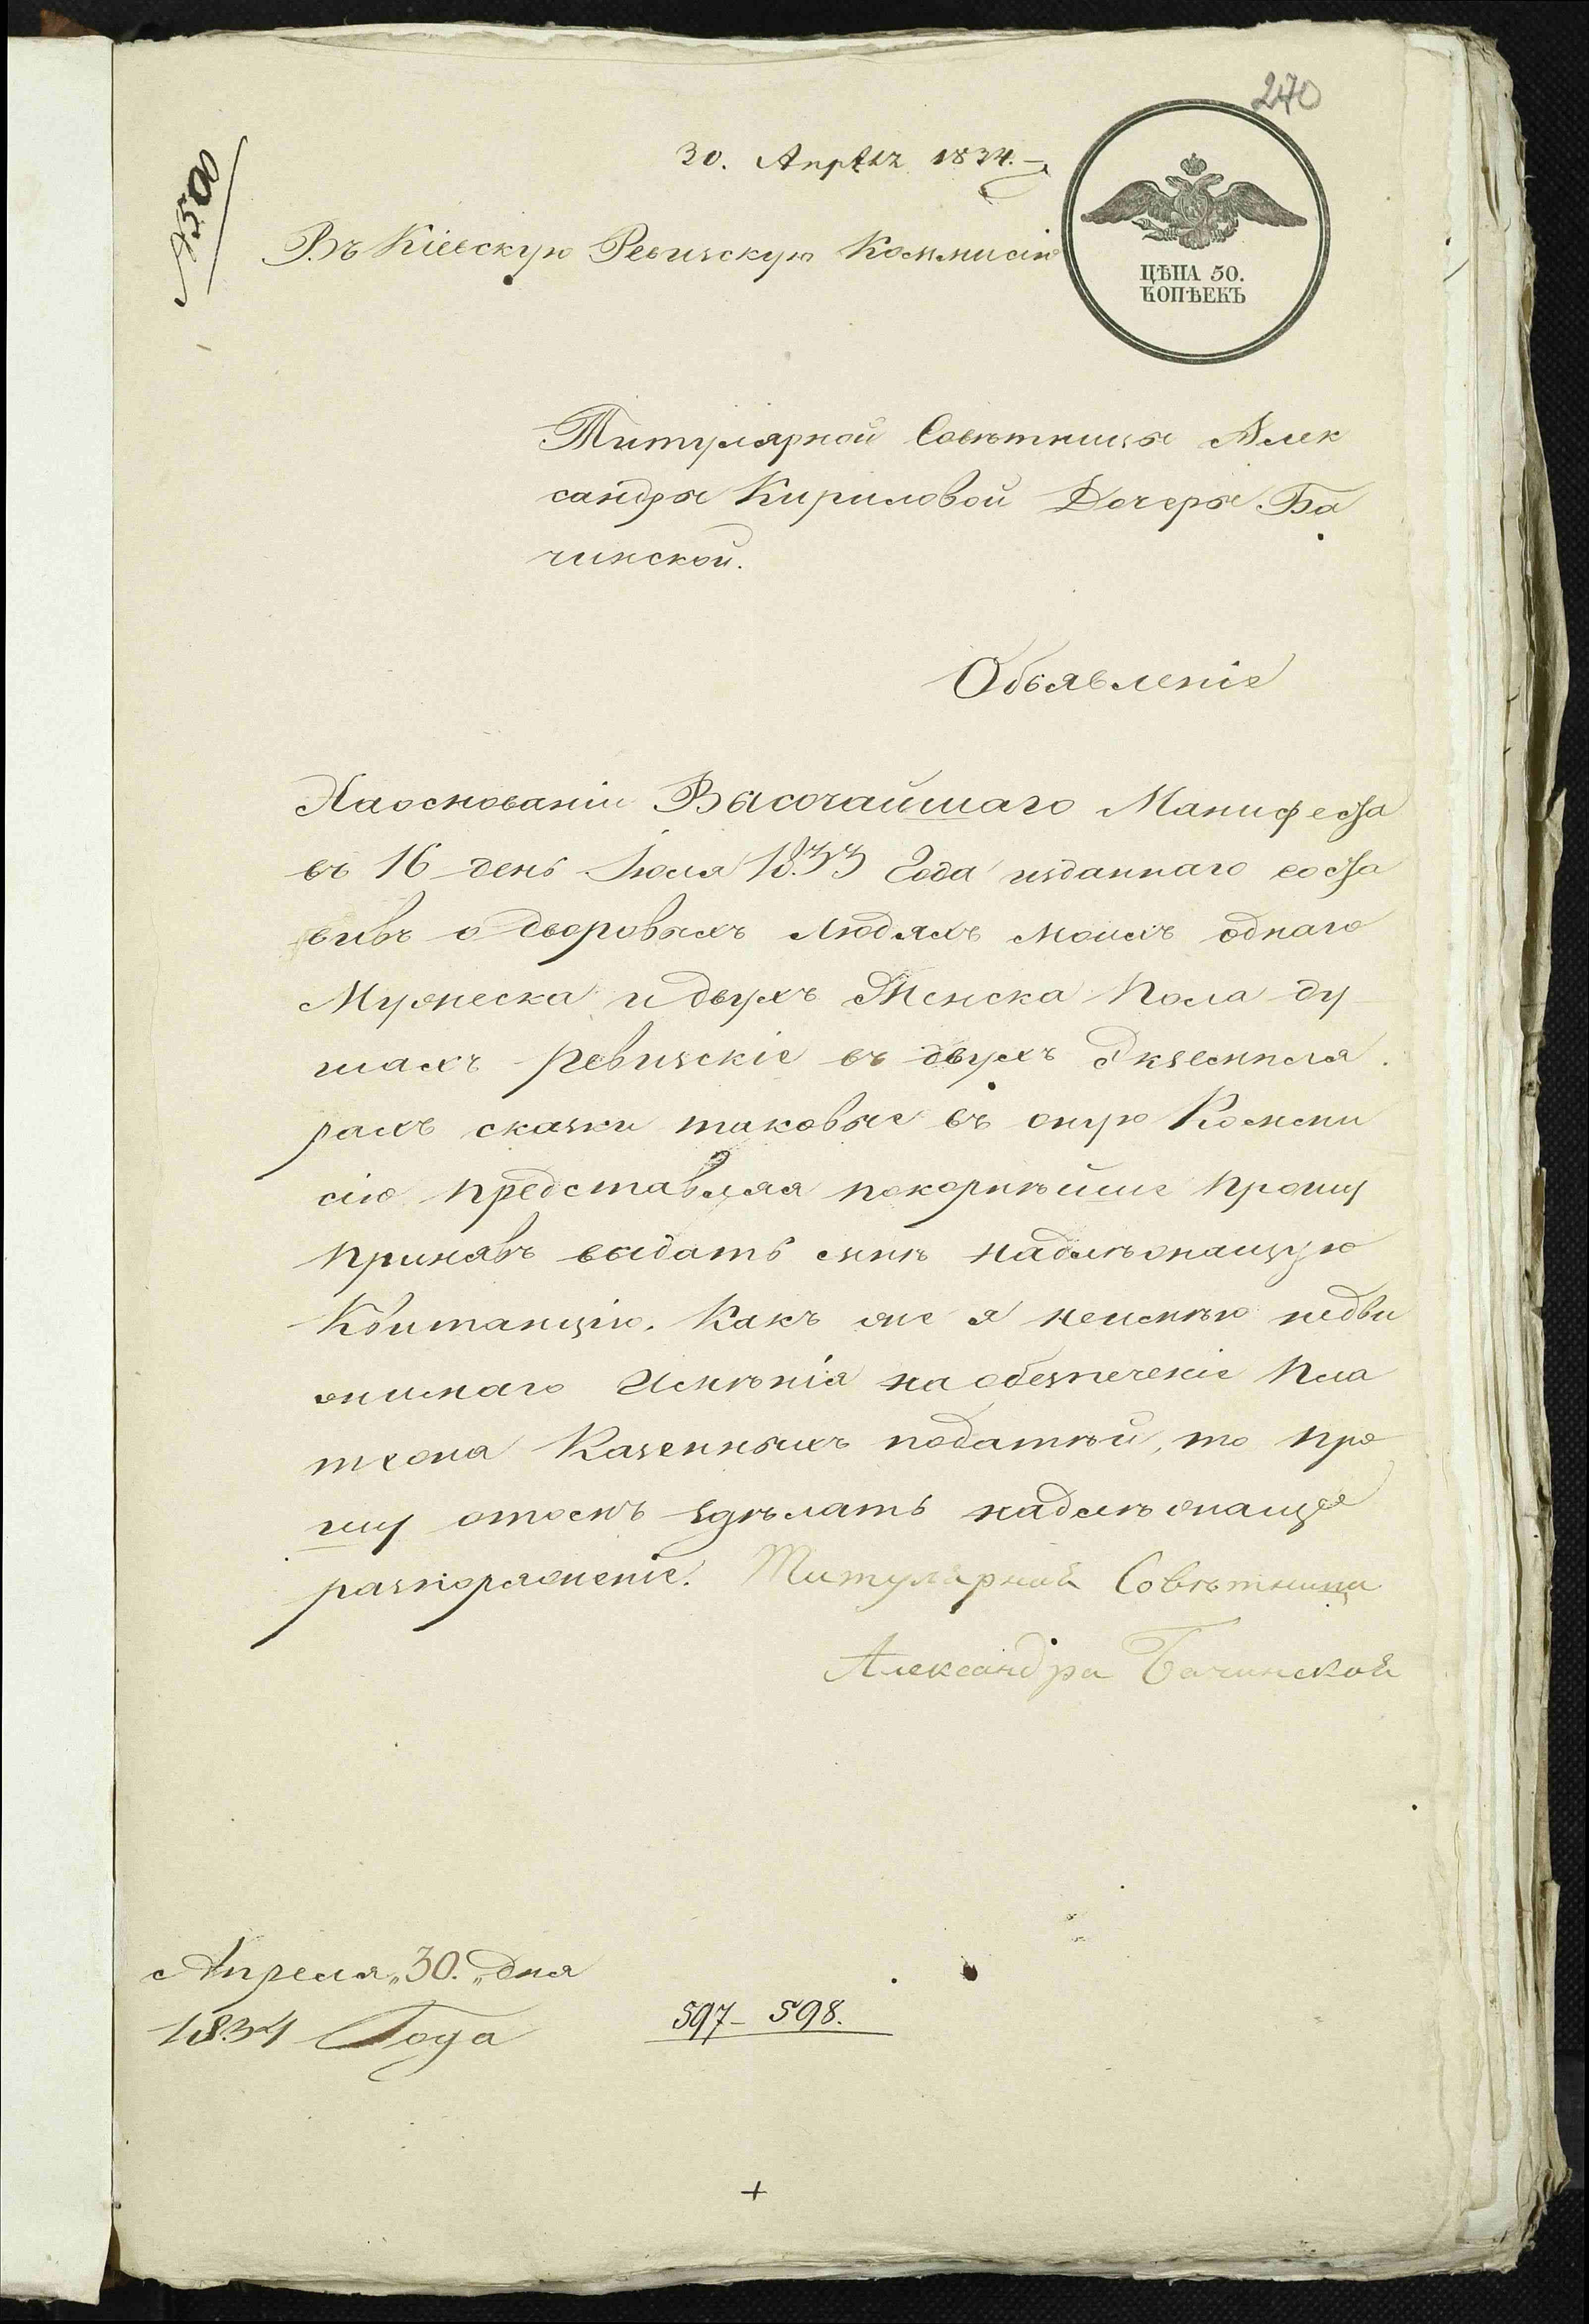 270
30. Апрѣля 1834.
№ 500
Въ Кіевскую Ревизскую Коммисію
ЦѢНА 50.
КОПѢЕКЪ
Титулярной Совѣтницы Алек
сандры Кириловой Дочеры Ба
чинской.
Объявленіе
На основаніи Высочайшаго Манифеста
въ 16 день Іюля 1833 Года изданнаго соста
вивъ о дворовыхъ людяхъ моихъ однаго
Мужеска и двухъ Женска Пола ду
шахъ ревизскіе въ двухъ Экземпля
рахъ сказки таковые въ оную Комми
сію представляя покорнѣйше прошу
принявъ выдать мнѣ надлѣжащую
Квитанцію. Какъ же я неимѣю недви
жимаго Имѣнія на обезпеченіе Пла
тежа Казенныхъ податѣй, то про
шу отомъ здѣлать надлѣжащее
разпоряженіе. Титулярная Совѣтница
Александра Бачинской
Апреля „30.„ дня
1834 Года
597 - 598.